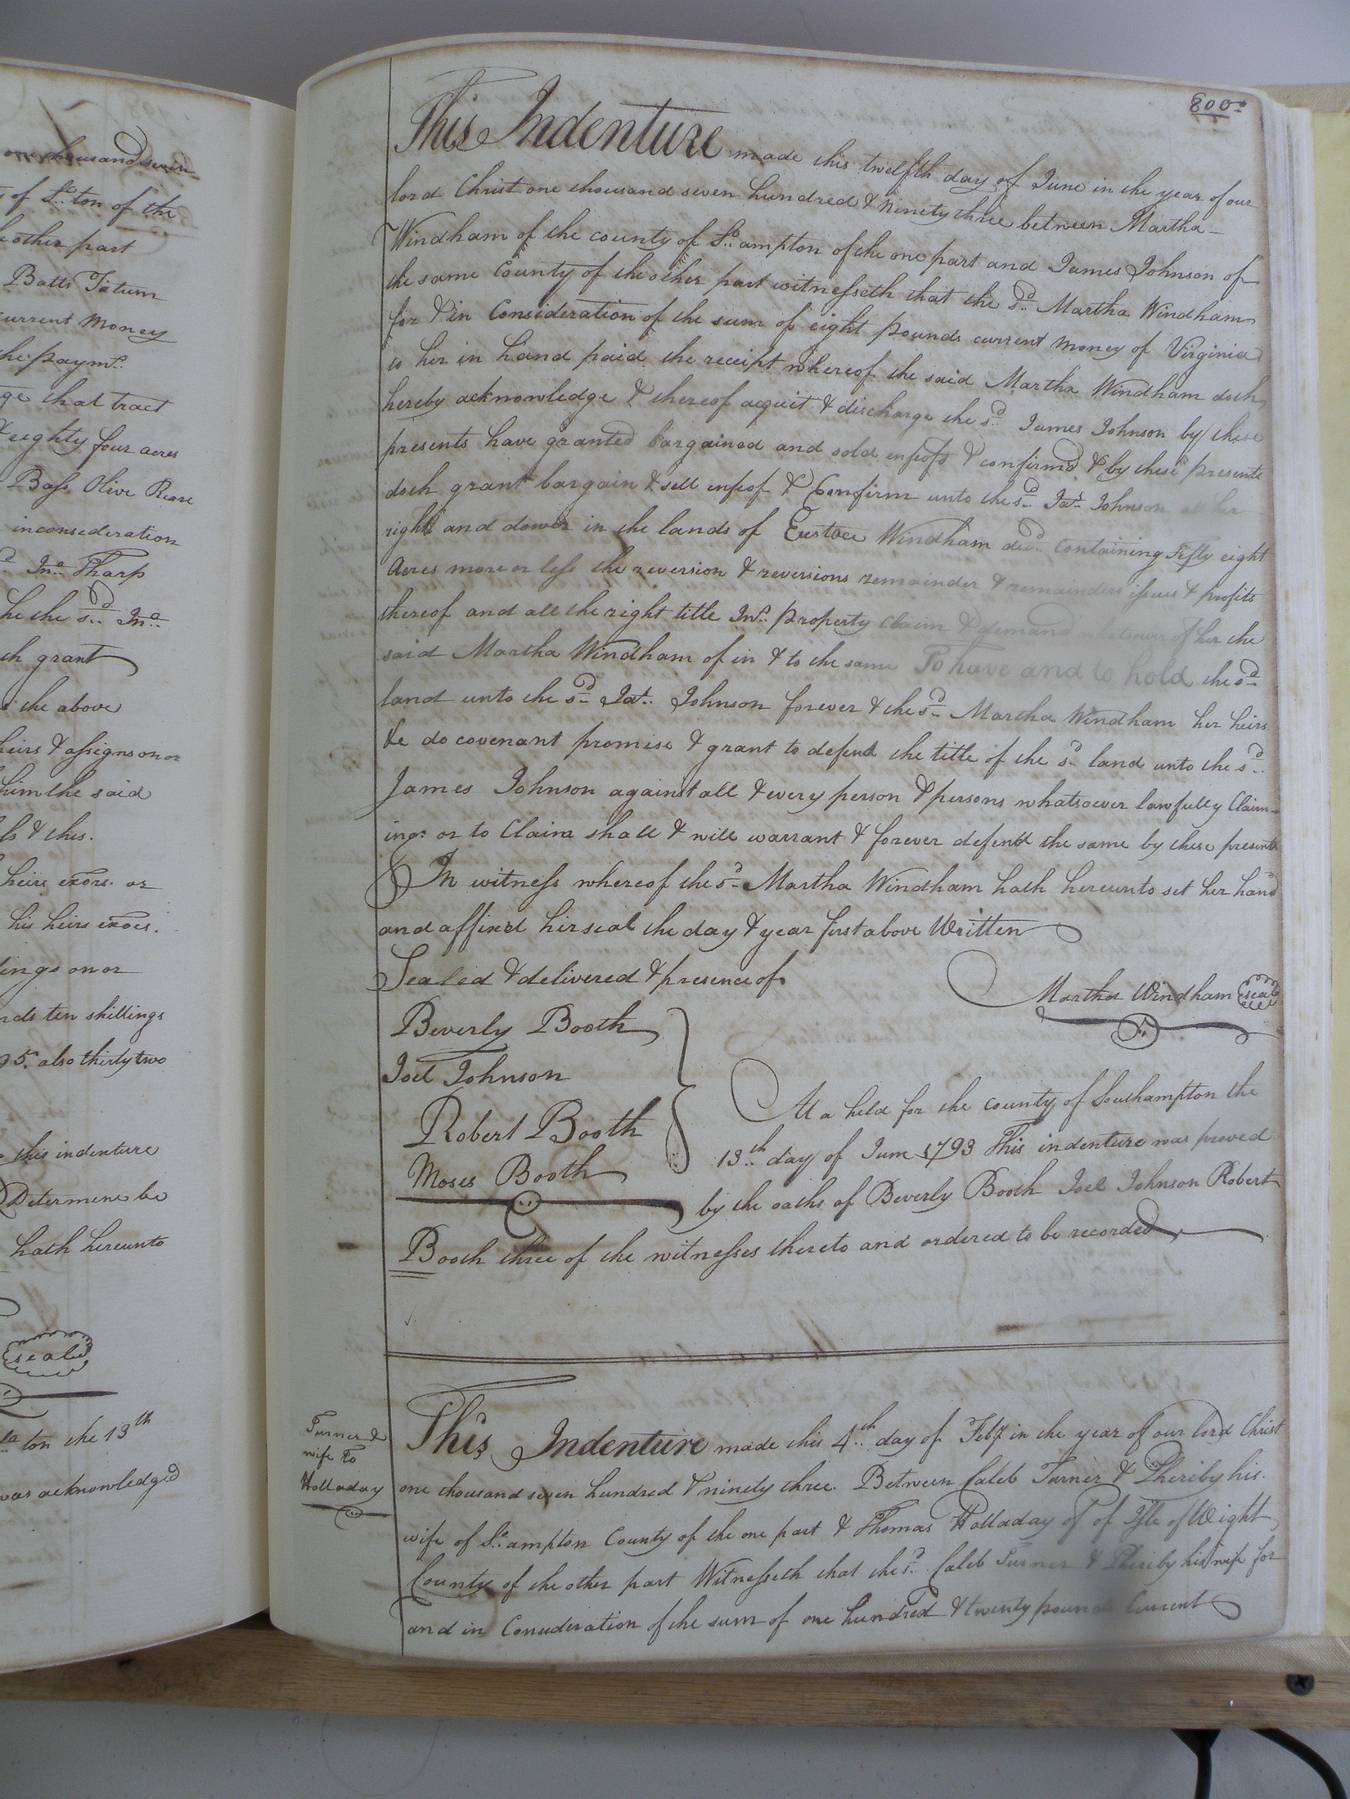 one thousand seven
of So. ton of the
other part
Batts Tatum
current Money
the paymt.
ge that tract
& eighty four acres
Bass Olive
inconsideration
d Jno. Tharp
he the sd. Jno.
th grant
the above
heirs & assigns on or
him the said
& this.
heirs exors. or
his heirs exors.
ings on or
nds ten shillings
95. also thirty two
this indenture
Determine be
hath hereunto
seal
ton the 13th
was acknowledged
800.
This Indenture made this twelfth day of June in the year of our
lord Christ one thousand seven hundred & ninety three between Martha
Windham of the county of So. ampton of the one part and James Johnson of
the same County of the other part witnesseth that the sd. Martha Windham
for & in Consideration of the sum of eight pounds current money of Virginia
to her in hand paid the receipt whereof the said Martha Windham doth
hereby acknowledge & thereof acquit & discharge the sd. James Johnson by these
presents have granted bargained and sold enfeoft & confirmd & by these presents
doth grant bargain & sell enfeof & Confirm unto the sd. Jas. Johnson all her
right and dower in the lands of Eustace Windham decd. Containing Fifty eight
Acres more or less the reversion & reversions remainder & remainders issues & profits
thereof and all the right title Int. property claim & demand whatever of her the
said Martha Windham of in & to the same To have and to hold the sd.
land unto the sd. Jas. Johnson forever & the sd. Martha Windham her heirs
&c do covenant promise & grant to defend the title of the sd land unto the sd.
James Johnson against all & every person & persons whatsoever lawfully Claim-
ing or to Claim shall & will warrant & forever defend the same by these presents
In witness whereof the sd Martha Windham hath hereunto set her hand
and affixed hir seal the day & year first above Written
Sealed & delivered & presence of
Martha Windham seal
Beverly Booth
Joel Johnson
Robert Booth
Moses Booth
At a held for the county of Southampton the
13th day of June 1793 This indenture was proved
by the oaths of Beverly Booth Joel Johnson Robert
Booth three of the witnesses thereto and ordered to be recorded
Turner &
wife To
Holladay
This Indenture made this 4th day of Feby in the year of our lord Christ
one thousand seven hundred & ninety three. Between Caleb Turner & Phereby his
wife of So. ampton County of the one part & Thomas Holladay of of Isle of Wight
County of the other part Witnesseth that the sd. Caleb Turner & Phereby his wife for
and in Consideration of the sum of one hundred & twenty pounds Current